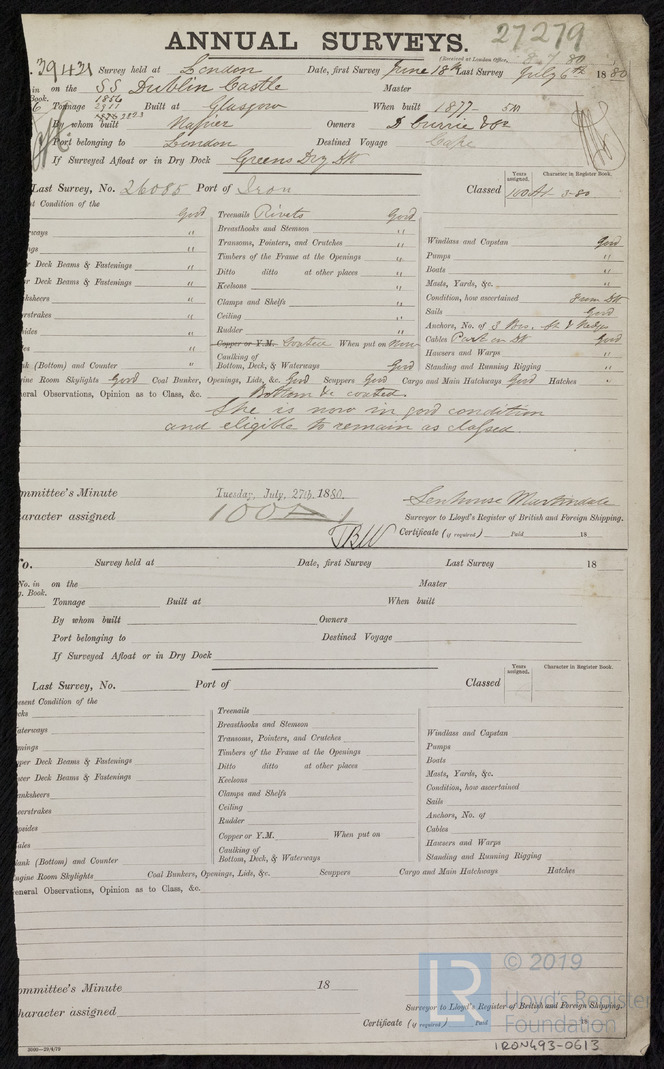 27279
ANNUAL SURVEYS.
(Received at London Office, 80
39421 Survey held at London Date, first Survey June 18th Last Survey July 6th 1880
in on the SS Dublin Castle Master
Book. 1856
6 Tonnage 2911 Built at Glasgow When built 1877 5M
By whom built Napier Owners D Currie & Co
Port belonging to London Destined Voyage Cape
If Surveyed Afloat or in Dry Dock Greens Dry Dk
Years assigned. Character in Register Book.
Last Survey, No. 26085 Port of Iron Classed 100A1- 3-80
t Condition of the
Good Treenails Rivets Good
ways " Breasthooks and Stemson " Windlass and Capstan Good
ngs " Transoms, Pointers, and Crutches " Pumps "
r Deck Beams & Fastenings " Timbers of the Frame at the Openings " Boats "
r Deck Beams & Fastenings " Ditto ditto at other places " Masts, Yards, &c. "
ksheers " Keelsons " Condition, how ascertained from Dk
rstrakes " Clamps and Shelfs " Sails Good
ides " Ceiling " Anchors, No. of 3 Brs. St & Kedge
es " Rudder " Cables Part in Dk Good
Copper or Y.M. Coated When put on Now Hawsers and Warps "
nk (Bottom) and Counter " Caulking of Bottom, Deck, & Waterways Good Standing and Running Rigging "
ine Room Skylights Good Coal Bunker, Openings, Lids, &c. Good Scuppers Good Cargo and Main Hatchways Good Hatches "
eral Observations, Opinion as to Class, &c. Bottom &c coated.
She is now in good condition
and eligible to remain as classed.
mmittee's Minute Tuesday, July, 27th, 1880. Senhouse Martindale
aracter assigned 100A1 Surveyor to Lloyd's Register of British and Foreign Shipping.
TBW Certificate (if required) Paid 18
o. Survey held at Date, first Survey Last Survey 18
No. in on the Master
g. Book.
Tonnage Built at When built
By whom built Owners
Port belonging to Destined Voyage
If Surveyed Afloat or in Dry Dock
Years assigned. Character in Register Book.
Last Survey, No. Port of Classed
esent Condition of the
cks Treenails
aterways Breasthooks and Stemson Windlass and Capstan
anings Transoms, Pointers, and Crutches Pumps
pper Deck Beams & Fastenings Timbers of the Frame at the Openings Boats
wer Deck Beams & Fastenings Ditto ditto at other places Masts, Yards, &c.
anksheers Keelsons Condition, how ascertained
eerstrakes Clamps and Shelfs Sails
opsides Ceiling Anchors, No. of
ales Rudder Cables
Copper or Y.M. When put on Hawsers and Warps
lank (Bottom) and Counter Caulking of Bottom, Deck, & Waterways Standing and Running Rigging
ngine Room Skylights Coal Bunkers, Openings, Lids, &c. Scuppers Cargo and Main Hatchways Hatches
eneral Observations, Opinion as to Class, &c.
ommittee's Minute 18
haracter assigned Surveyor to Lloyd's Register of British and Foreign Shipping.
Certificate (if required) Paid 18
LR © 2019
Lloyd's Register
Foundation
3000—29/4/79
IRON493-0613